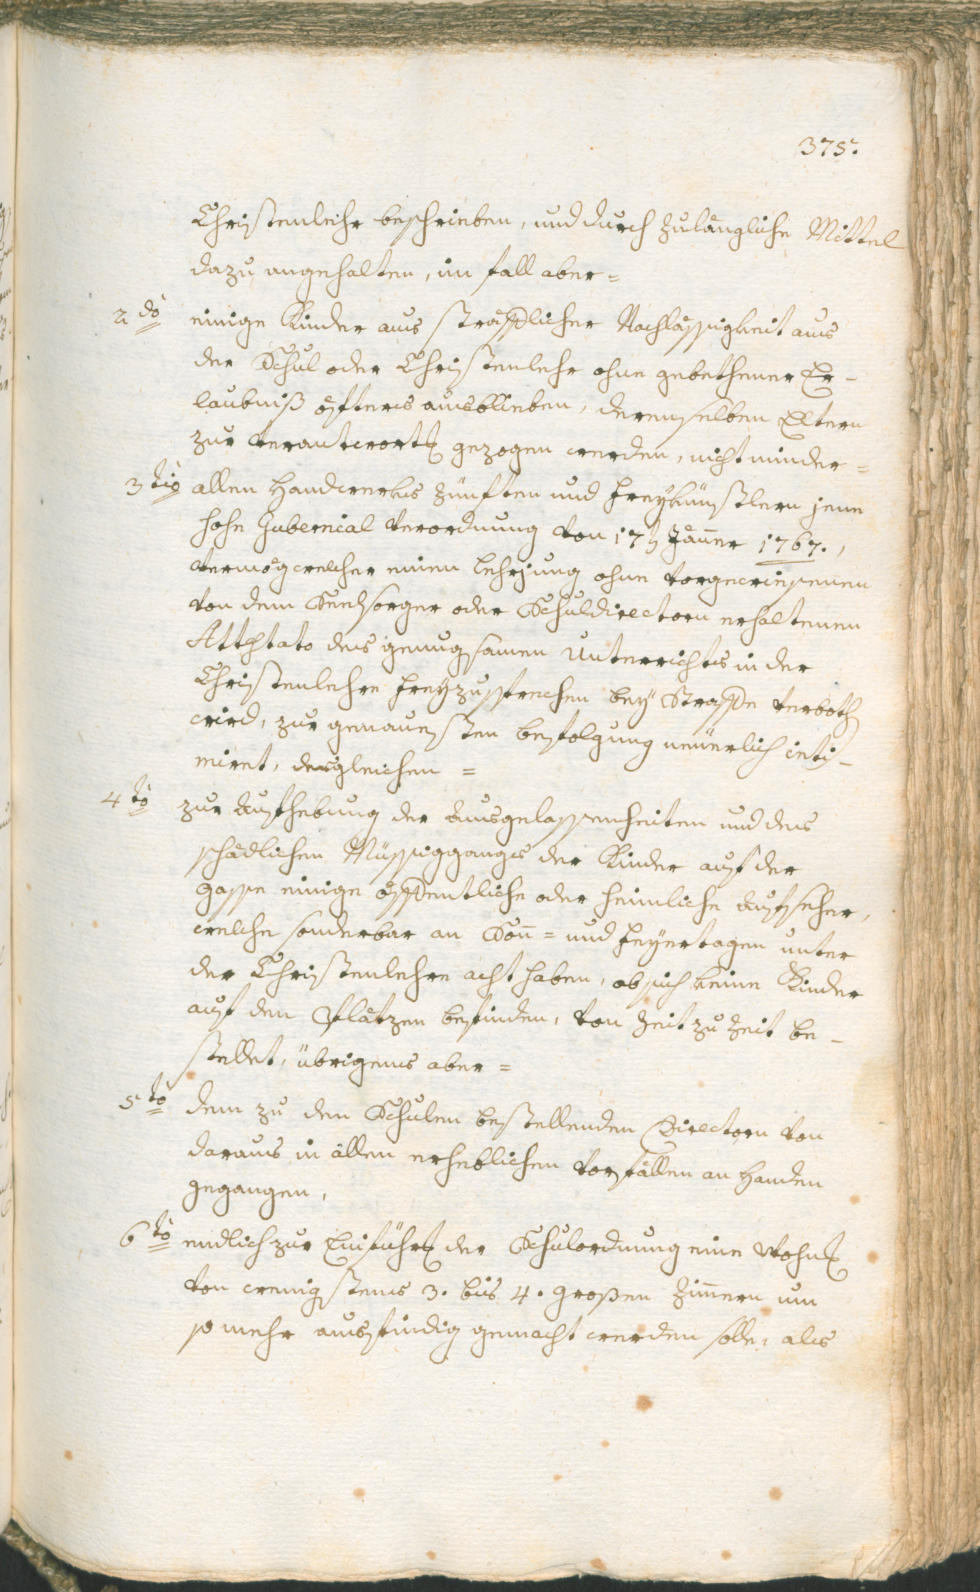 375.
Christenlehr beschrieben, und durch zulängliche Mittel
dazu angehalten, im fall aber =
2do einige Kinder aus sträflicher Nachlässigkeit aus
der Schul oder Christenlehr ohne gebethener Er-
laubniß öfters ausblieben, derenselben Eltern
zur Verantwort. gezogen werden, nicht minder =
3tio allen Handwerks Zünften und Freykünstlern jene
hohe Gubernial Verordnung von 17t Jäner 1767.,
vermög welcher einen Lehrjung ohne vorgewiesenen
von dem Seelsorger oder Schuldirectorn erhaltenen
Attestato des genugsamen Unterrichts in der
Christenlehre freyzusprechen bey Straffe verboth.
wird, zur genauesten befolgung neuerlich inti-
miret, desgleichen =
4to zur Aufhebung der Ausgelassenheiten und des
schädlichen Müssigganges der Kinder auf der
Gasse einige öffentliche oder heimliche Aufseher,
welche sonderbar an Son̄= und Feyertagen unter
der Christenlehre acht haben, ob sich keine Kinder
auf den Plätzen befinden, von Zeit zu Zeit be-
stellet, übrigens aber =
5to dem zu den Schulen bestellenden Directorn von
daraus in allen erheblichen Vorfällen an Handen
gegangen,
6to endlich zur Einführ. der Schulordnung eine Wohn.
von wenigstens 3. bis 4. großen Zim̄ern um
so mehr ausfindig gemacht werden solle, als